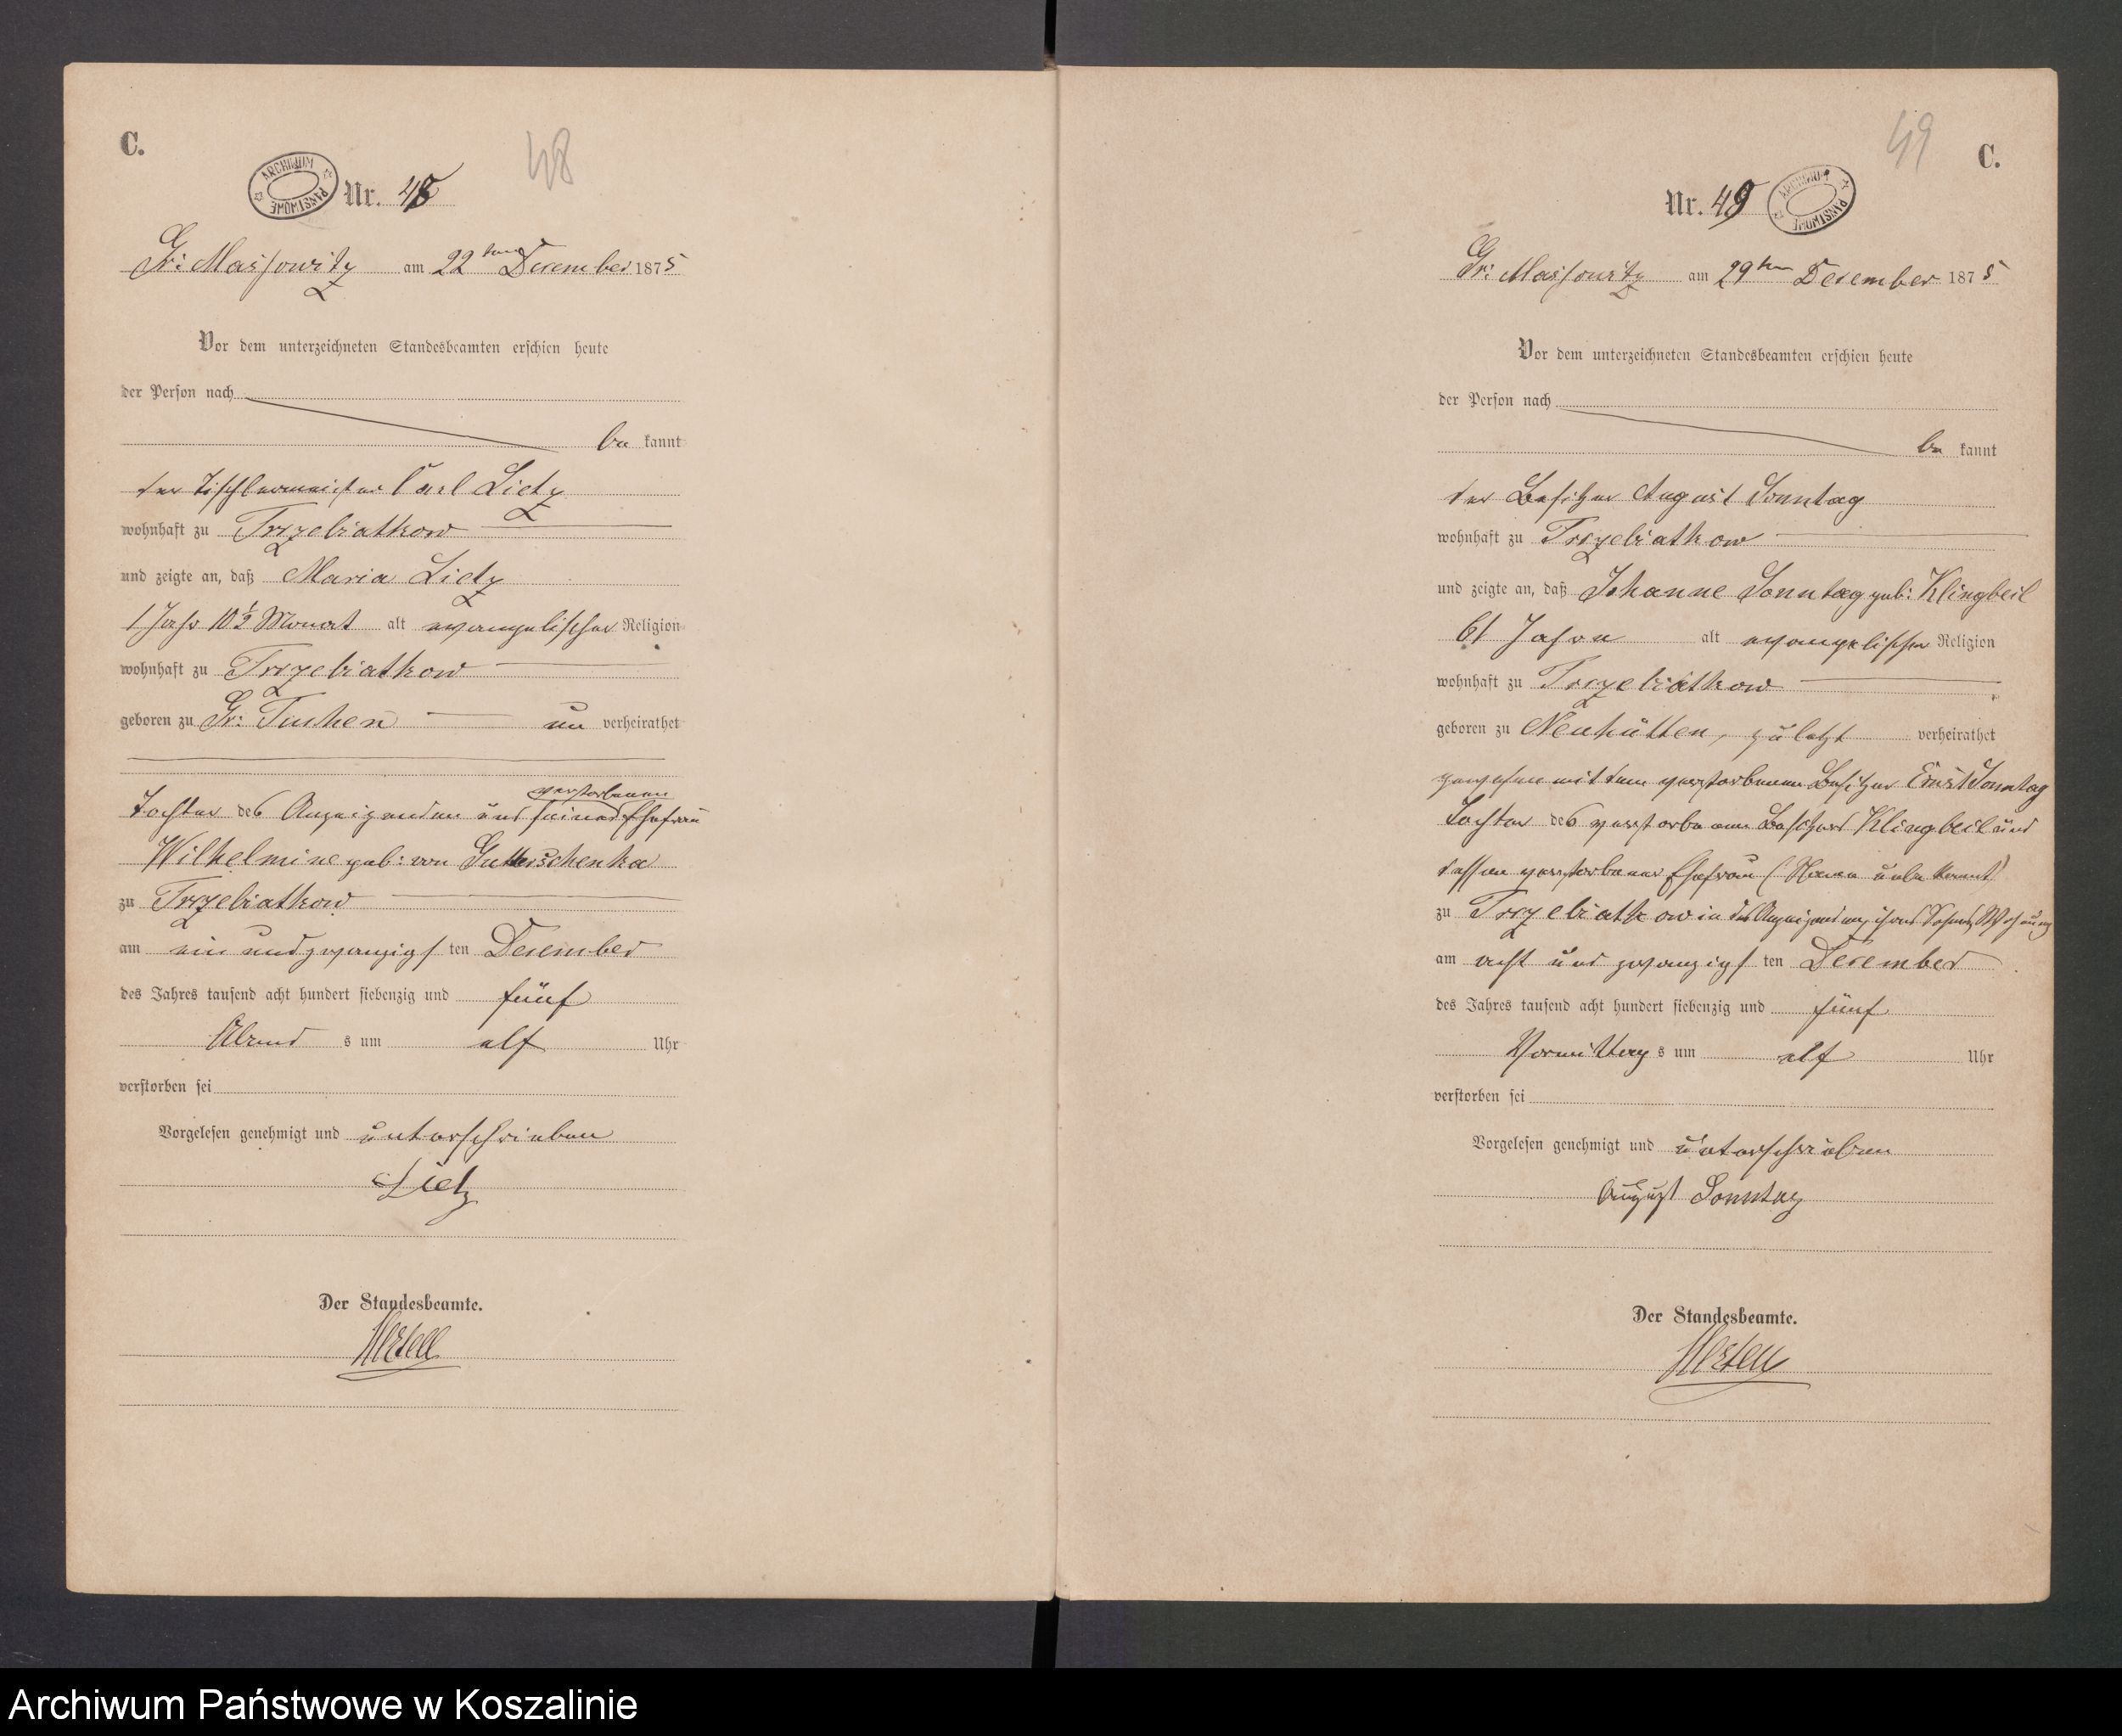 C.
ARCHIWUM PAŃSTWOWE
Nr. 48
48
Gr: Massowitz am 22ten December 1875
Vor dem unterzeichneten Standesbeamten erschien heute
der Person nach
be kannt
der Tischlermeister Carl Lietz
wohnhaft zu Trzebiatkow
und zeigte an, daß Maria Lietz
1 Jahr 10 ½ Monat alt evangelischer Religion
wohnhaft zu Trzebiatkow
geboren zu Gr: Tuchen un verheirathet
verstorbenen
Tochter des Anzeigenden und seiner Ehefrau
Wilhelmine geb: von
zu Trzebiatkow
am ein und zwanzigs ten December
des Jahres tausend acht hundert siebenzig und fünf
Abend s um elf Uhr
verstorben sei
Vorgelesen genehmigt und unterschrieben
Lietz
Der Standesbeamte.
49
C.
Nr. 49
ARCHIWUM PAŃSTWOWE
Gr: Massowitz am 29ten December 1875
Vor dem unterzeichneten Standesbeamten erschien heute
der Person nach
be kannt
der Besitzer August Sonntag
wohnhaft zu Trzebiatkow
und zeigte an, daß Johanne Sonntag geb: Klingbeil
61 Jahre alt evangelischer Religion
wohnhaft zu Trzebiatkow
geboren zu Neuhütten, zuletzt verheirathet
gewesen mit dem verstorbenen Besitzer Ernst Sonntag
Tochter des verstorbenen Besitzers Klingbeil und
dessen verstorbener Ehefrau (Name unbekannt)
zu Trzebiatkow in des Anzeigenden, ihres Sohnes, Wohnung
am acht und zwanzigs ten December
des Jahres tausend acht hundert siebenzig und fünf
Vormittag s um elf Uhr
verstorben sei
Vorgelesen genehmigt und unterschrieben
August Sonntag
Der Standesbeamte.
Archiwum Państwowe w Koszalinie